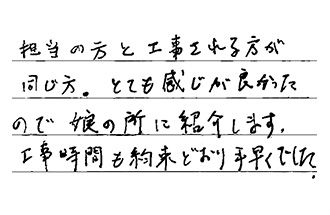 担当の方と工事される方が
同じ方。とても感じが良かった
ので娘の所に紹介します。
工事時間も約束どおり手早くでした。